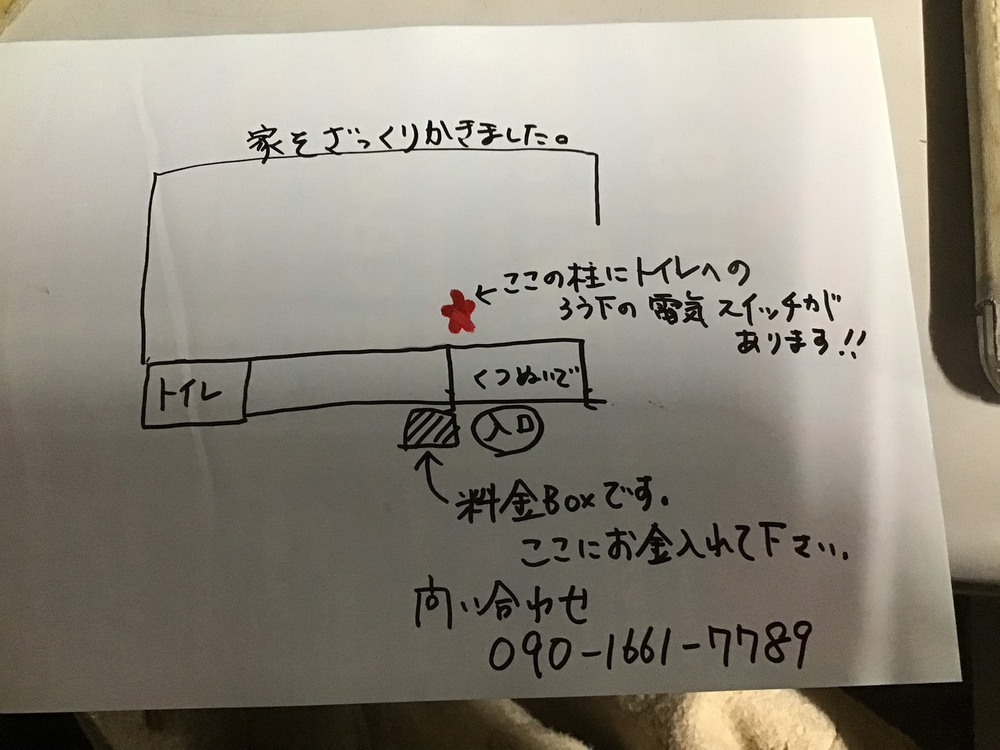 家をざっくりかきました。
←ここの柱にトイレへの
ろう下の電気スイッチが
あります!!
トイレ
くつぬいで
入口
料金Boxです。
ここにお金入れて下さい。
問い合わせ
090-1661-7789